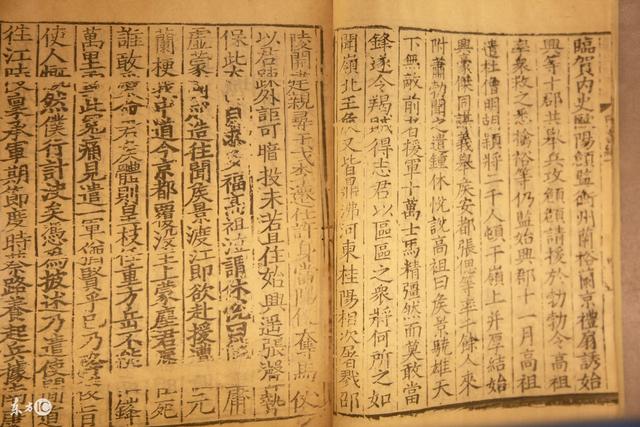 臨賀內史歐陽頠監衡州蘭裕蘭京禮扇誘始
興等十郡共舉兵攻頠頠請援於勃勃令高祖
率衆救之悉擒裕等仍監始興郡十一月高祖
遣杜僧明胡穎將二千人頓于嶺上并厚結始
興豪傑同謀義舉侯安都張偲等率千餘人來
附蕭勃聞之遣鍾休悅說高祖曰侯景驍雄天
下無敵前者援軍十萬士馬精彊然而莫敢當
鋒遂令羯賊得志君以區區之衆將何所之如
聞嶺北王侯又皆鼎沸河東桂陽相次屠戮邵
陵開建親尋干戈李遷仕許身當陽便奪馬仗
以君疎外詎可暗投未若且住始興遥張聲勢
保此太 自求多福高祖泣謂休悅曰 庸
虛蒙國成造往聞侯景渡江即欲赴援遭 元
蘭梗我中道今京都覆沒主上蒙塵君辱臣死
誰敢愛命君侯體則皇枝任重方岳不能 鋒
萬里雪此冤痛見遣一軍猶賢乎已乃 旨
使人慨然僕行計決矣憑爲披述乃遣使間道
往江陵稟承軍期節度時蔡路養起兵據南
东方IC